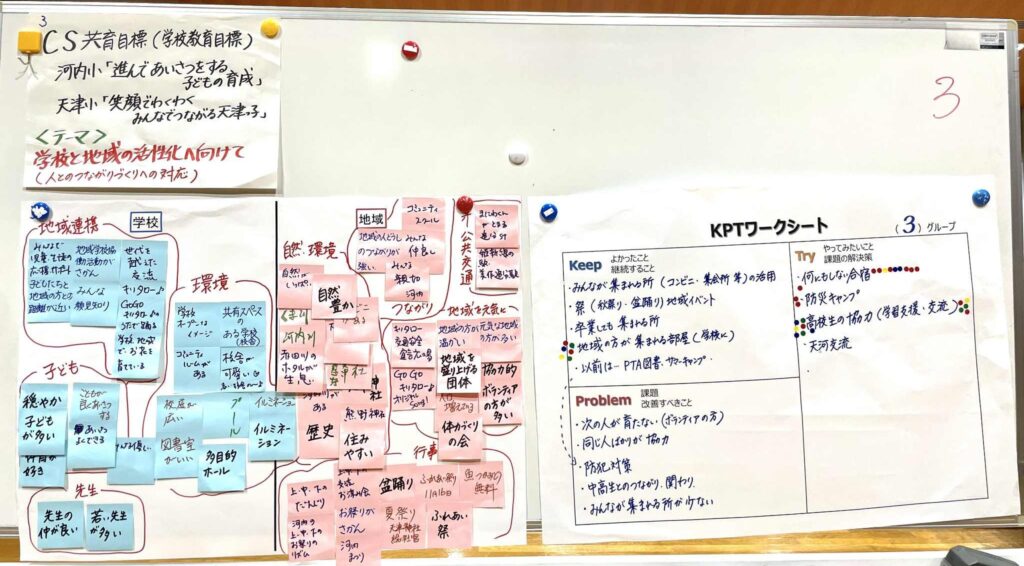 3
CS 共育目標(学校教育目標)
河内小「進んであいさつをする
子どもの育成」
天津小「笑顔でわくわく
みんなでつながる天津っ子」
<テーマ>
学校と地域の活性化へ向けて
(人とのつながりづくりへの対応)
3
地域連携
学校
みんなで
児童・生徒の
応援サポート
子どもたちと
地域の方との
距離が近い
地域学校協
働活動が
さかん
みんな
顔見知り
世代を
越えた
交流
キリタロー♪
GoGo
キリタロー♪
学校 地域
で お米を
育てている
環境
学校
オープンな
イメージ
コミュニティ
ルームが
ある
共有スペース
のある学校
(校舎)
校舎が
可愛い
子ども
穏やか
子どもが
多い
こどもが
良くあいさつ
する
あいさつ
よくできる
好き
校庭が
広い
プール
イルミネーション
イルミネ
ーション
図書室
がいい
多目的
ホール
先生
先生の
仲が良い
若い先生
が多い
地域
コミュニティ
スクール
地域の人どうし
のつながりが
強い
みんな
仲良し
みんな
親切
河内
つながり
自然・環境
自然が
いっぱい
自然
豊か
河内川
赤田川の
ホタルが
生息
歴史
神社
熊野神社
住み
やすい
公共交通
地域を元気に
キリタロー
交通安全
GoGo
キリタロー♪
オリジナル
地域の方が
温かい
元気な地域
の方が多い
地域を
盛り上げる
団体
協力的
ボランティア
の方が多い
体力づくり
の会
行事
上・中・下の
だんじり
河内の
上・中・下の
お祭りの
リズム
お祭りが
さかん
河内
まつり
盆踊り
夏祭り
天津神社
ふれあい祭り
11月16日
ふれあい
祭
魚つかみどり
無料
KPTワークシート
(3)グループ
Keep よかったこと
継続すること
・みんなが集まれる所(コンビニ・集会所 等)の活用
・祭(秋祭り・盆踊り)地域イベント
・卒業しても集まれる所
・地域の方が集まれる部屋(学校に)
・以前は… PTA図書、サマーキャンプ
Problem 課題
改善すべきこと
・次の人が育たない(ボランティアの方)
・同じ人ばかりが協力
・防犯対策
・中高生とのつながり、関わり
・みんなが集まれる所が少ない
Try やってみたいこと
課題の解決策
・何にもしない合宿
・防災キャンプ
・高校生の協力(学習支援・交流)
・天河交流